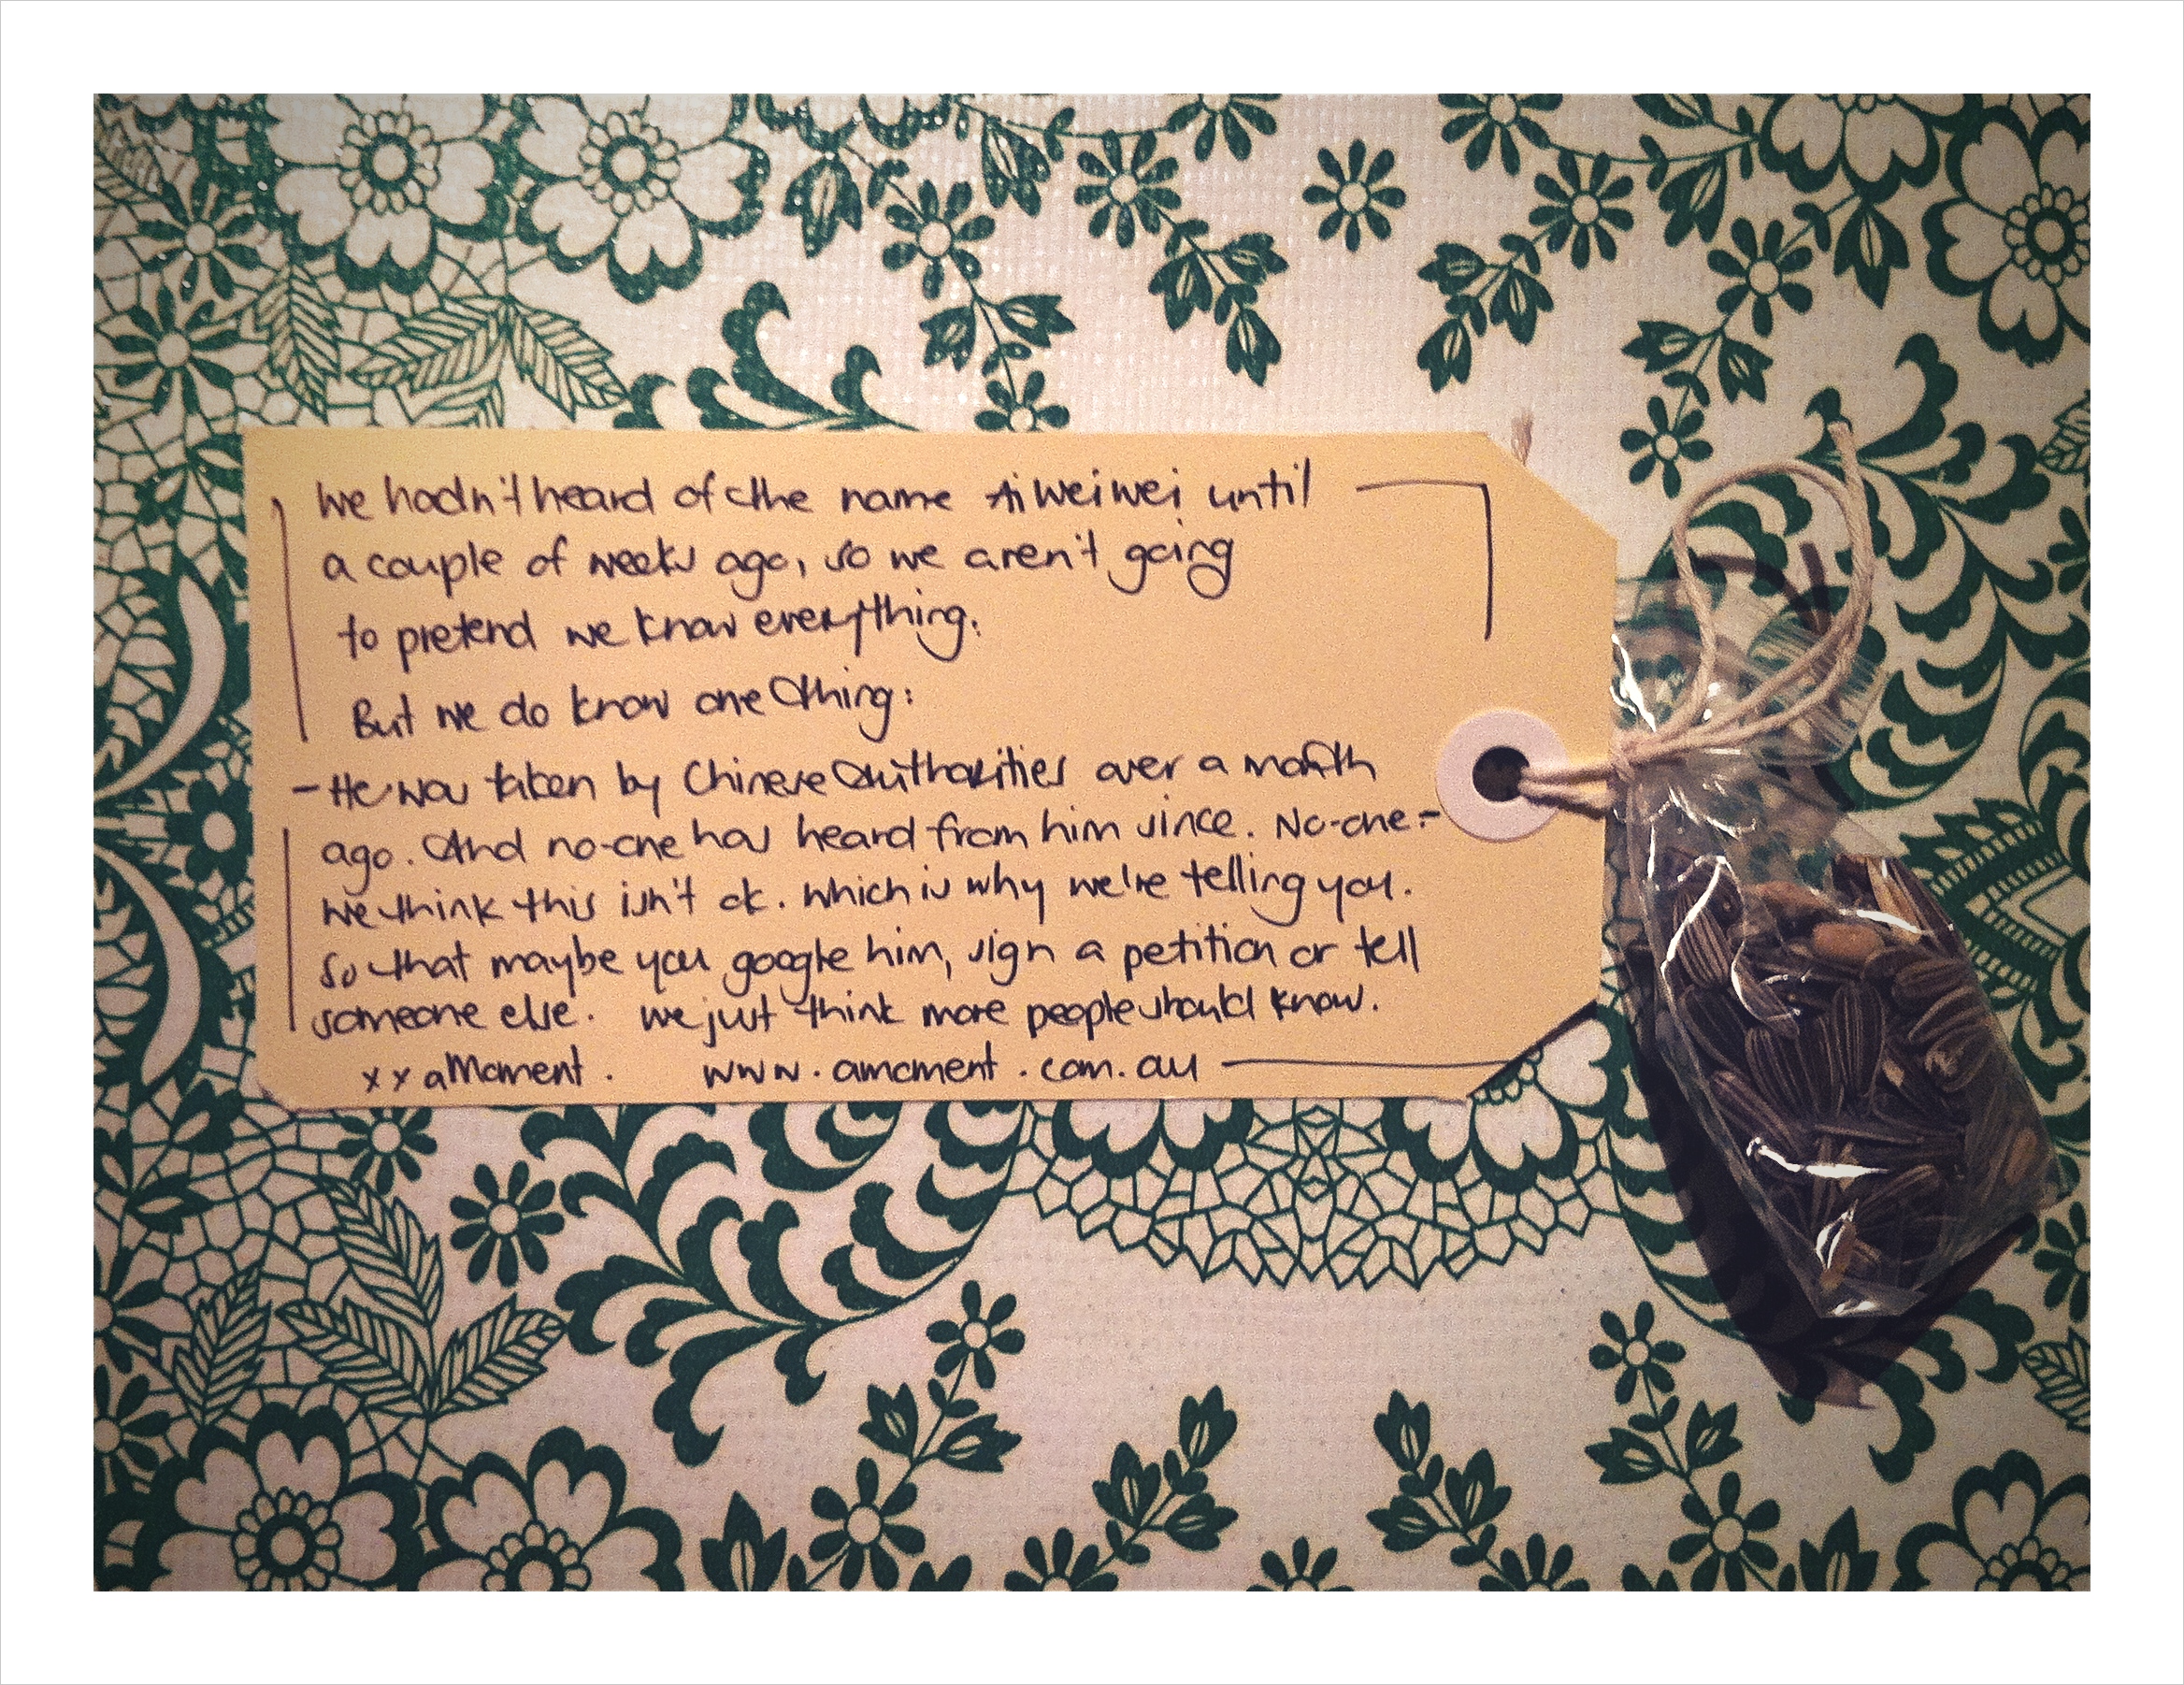 We hadn't heard of the name Ai Wei Wei until
a couple of weeks ago, so we aren't going
to pretend we know everything.
But we do know one thing:
- He was taken by Chinese Authorities over a month
ago. And no-one has heard from him since. No-one -
We think this isn't ok. Which is why we're telling you.
So that maybe you google him, sign a petition or tell
someone else. We just think more people should know.
x x aMoment. www.amoment.com.au